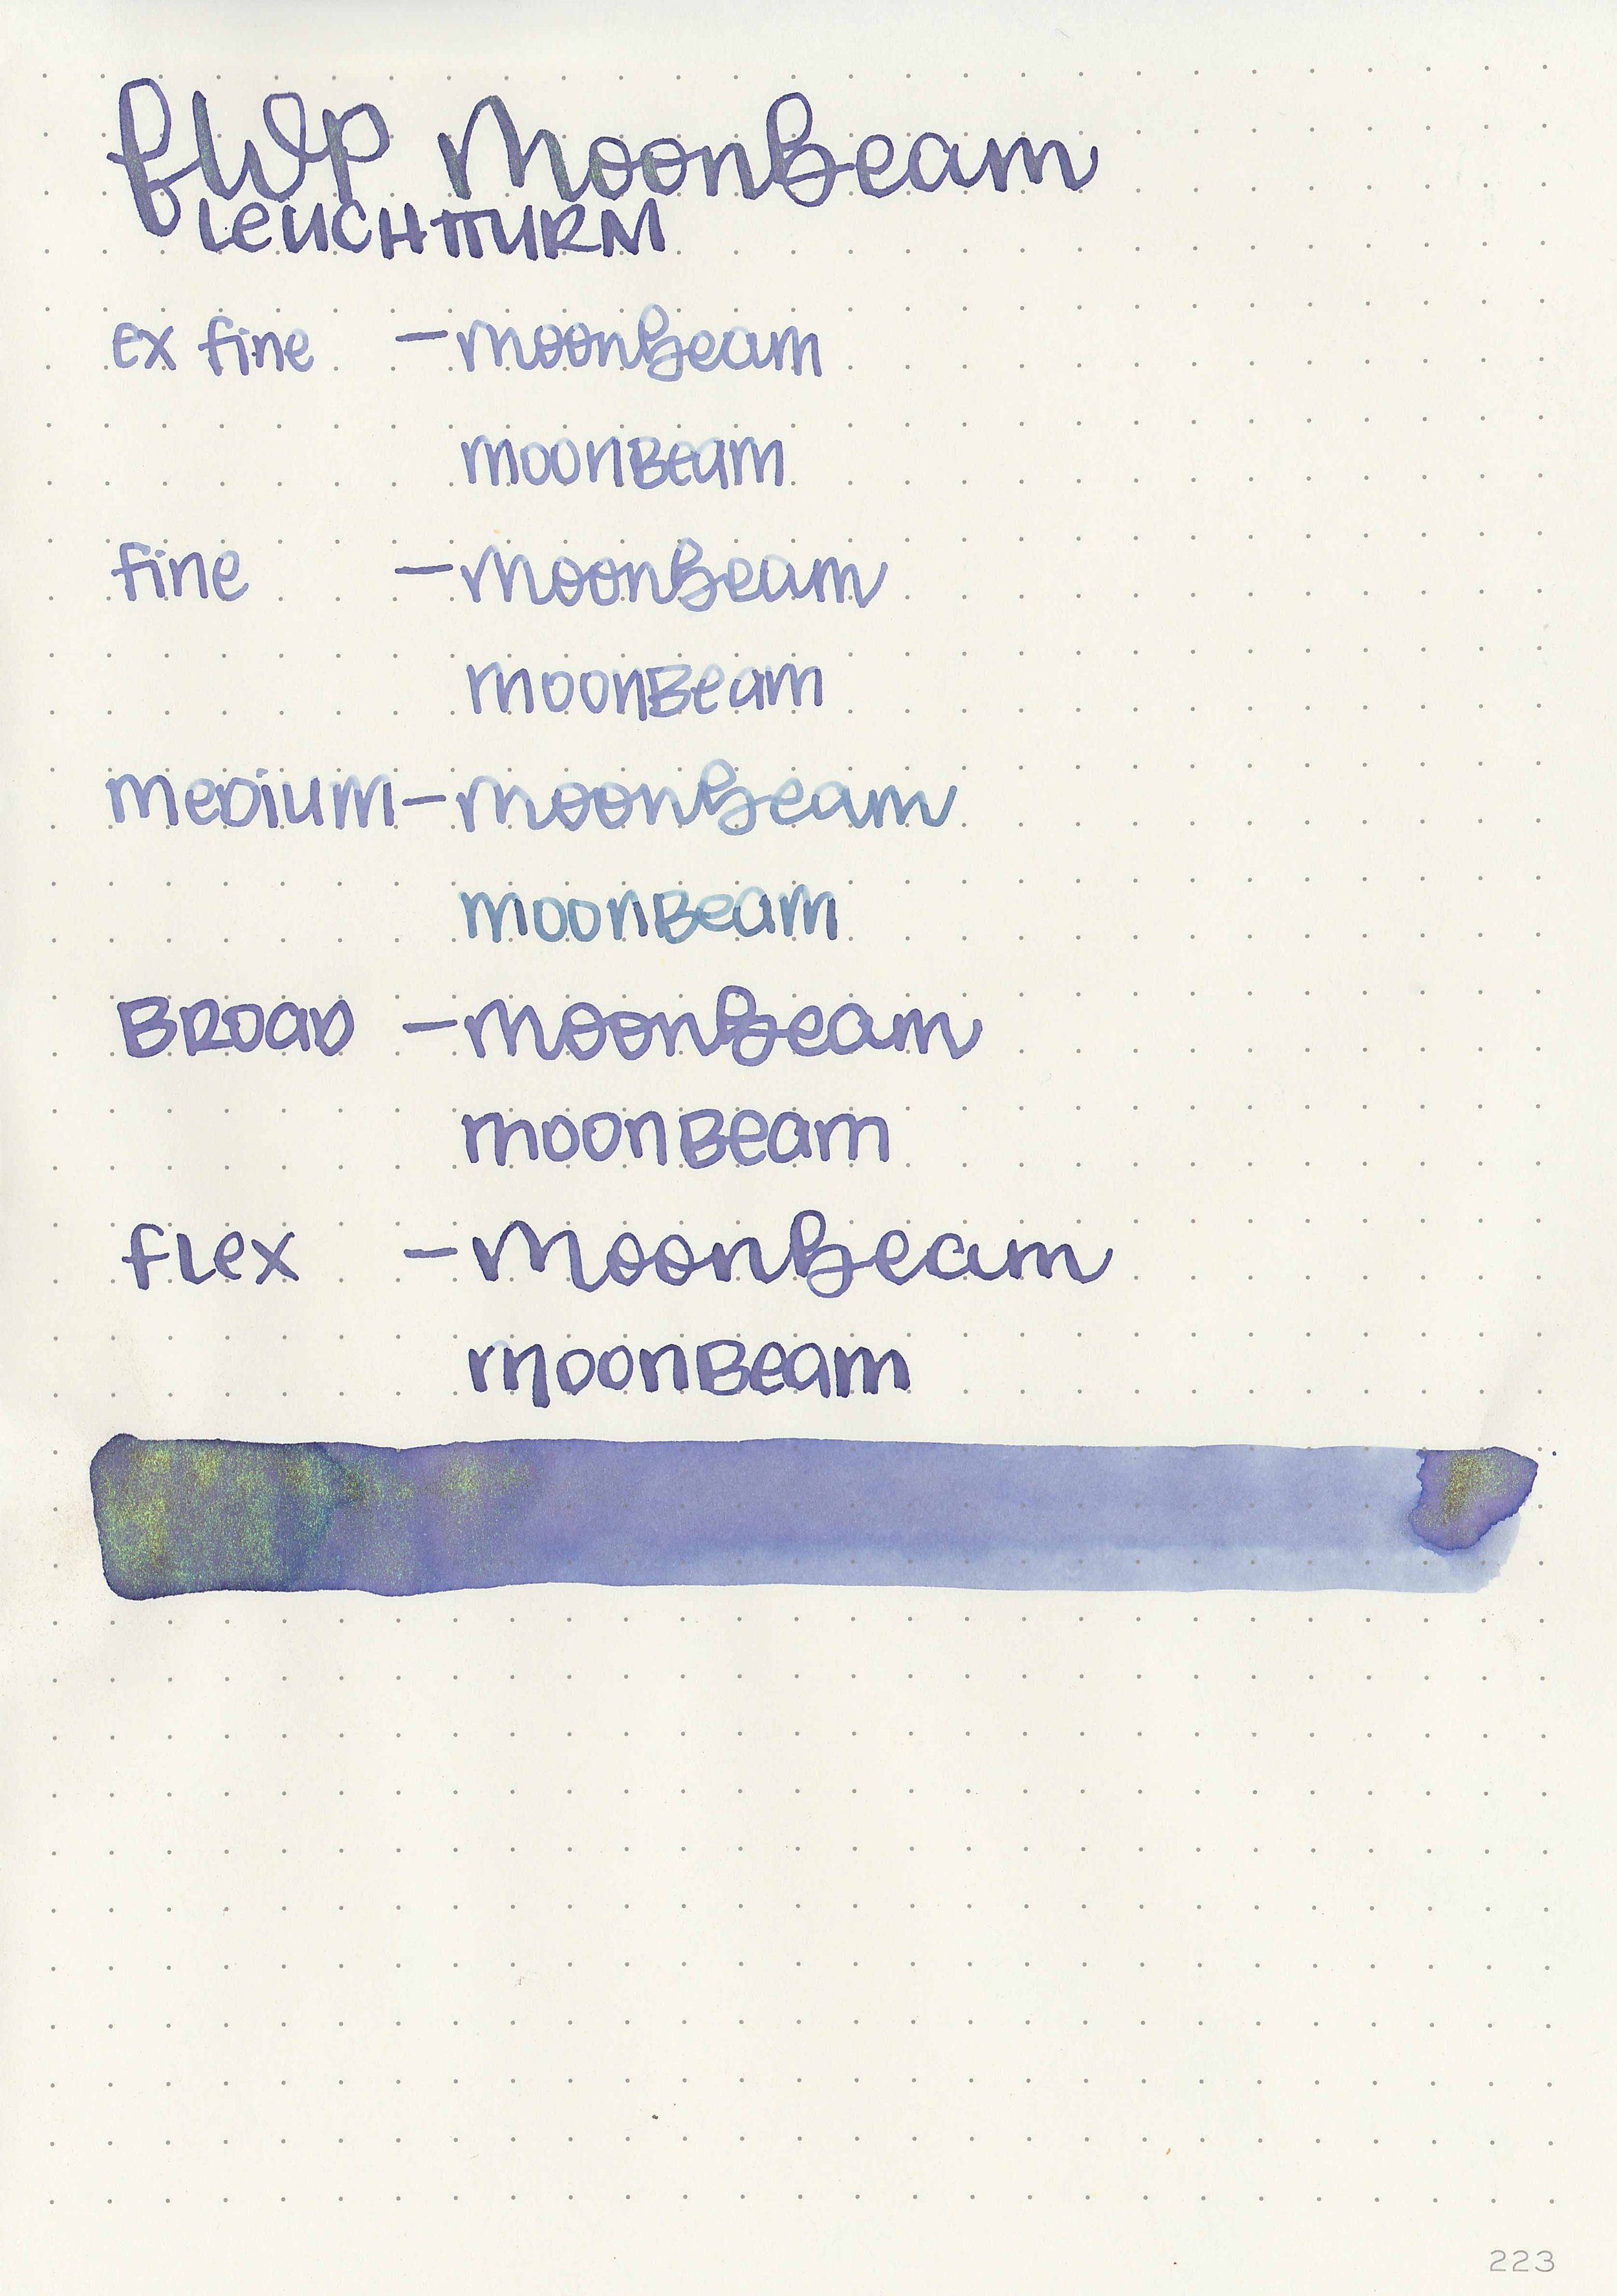 fWP MoonBeam
LeUCHTTURM
ex fine - moonBeam
moonBeam
fine - moonBeam
moonBeam
meDium - moonBeam
moonBeam
BROAD - moonBeam
moonBeam
fLex - moonBeam
moonBeam
223